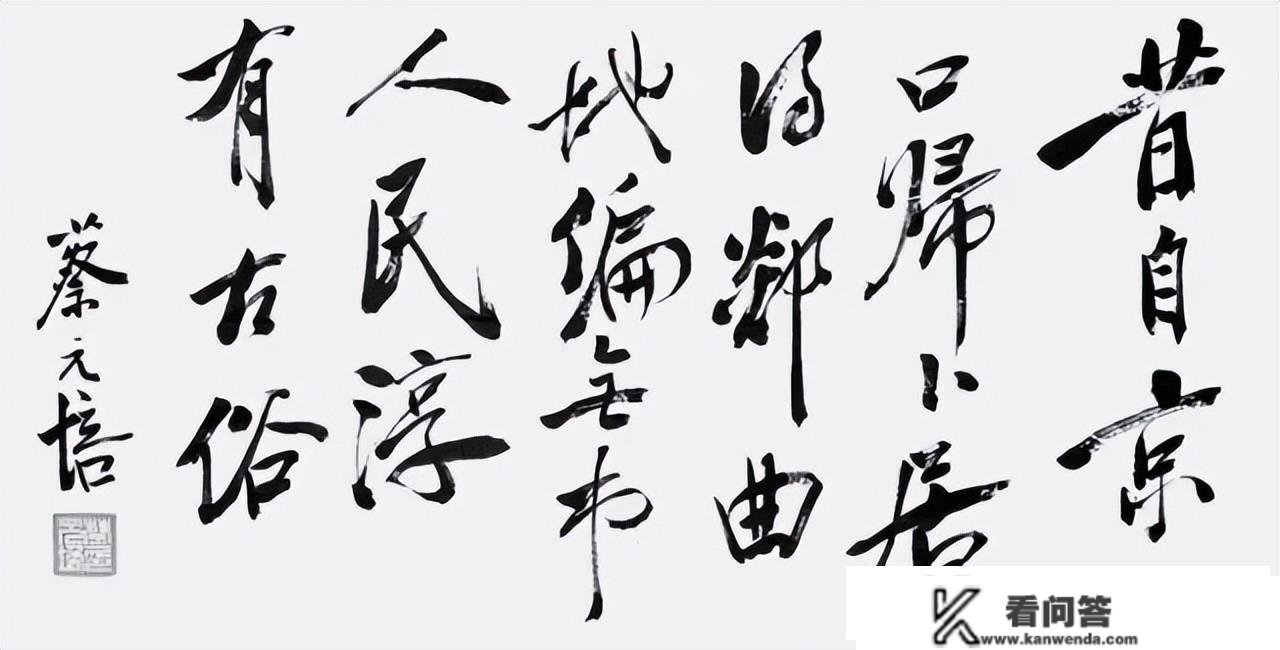 昔自京
口歸卜居
得鄰曲
地偏無市
人民淳
有古俗
蔡元培
看问答
www.kanwenda.com